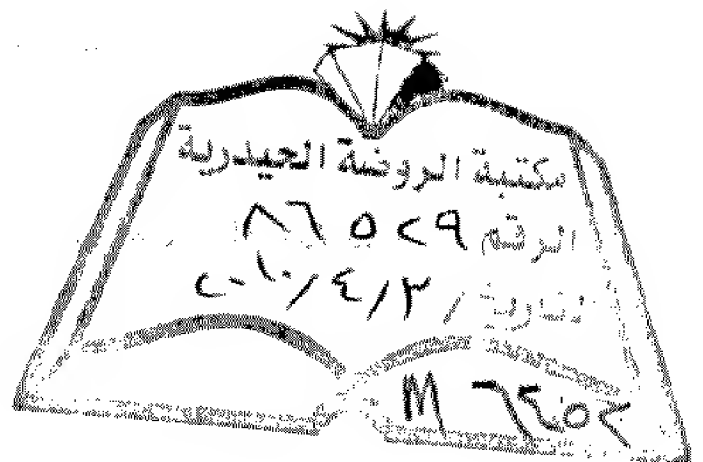 مكتبة الروضة الحيدرية
الرقم ٨٦٥٢٩
التاريخ / ٣/٤/٢٠١٠
M ٦٤٥٢